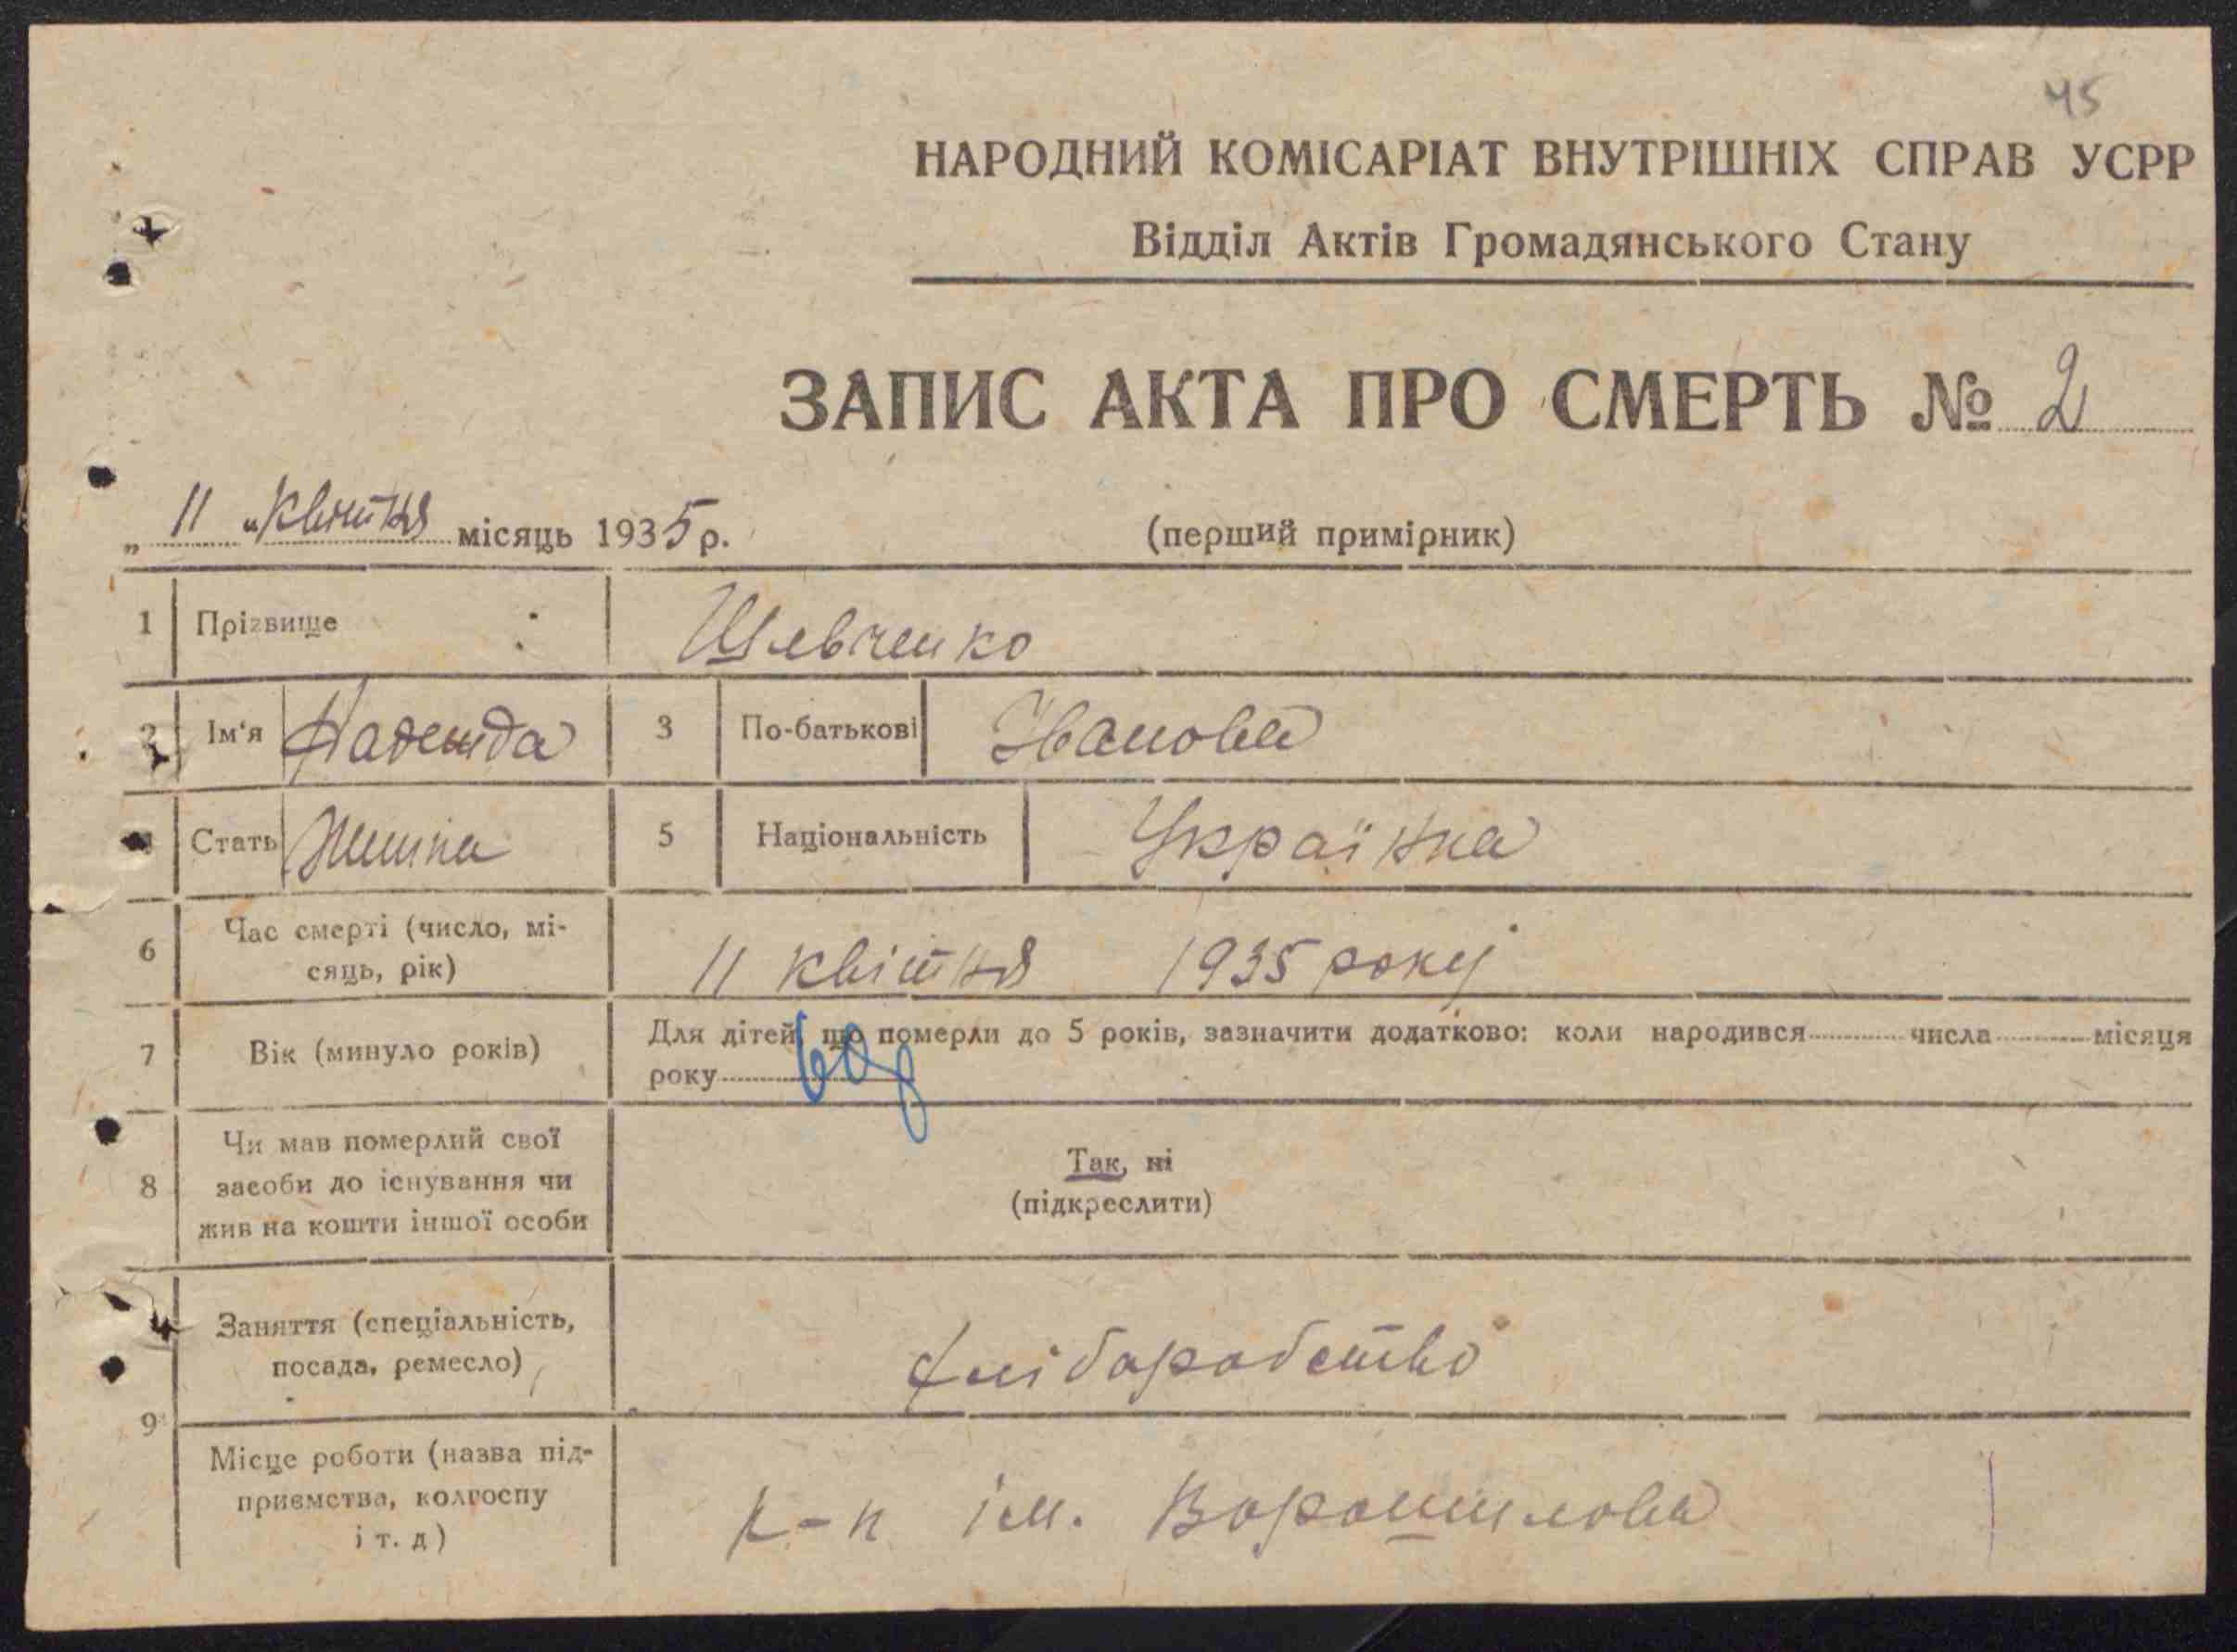 45
НАРОДНИЙ КОМІСАРІАТ ВНУТРІШНІХ СПРАВ УСРР
Відділ Актів Громадянського Стану
ЗАПИС АКТА ПРО СМЕРТЬ № 2
„ 11 “ квітня місяць 1935 р. (перший примірник)
1 Прізвище Шевченко
2 Ім‘я Надежда 3 По-батькові Іванова
Стать Жінка 5 Національність Українка
6 Час смерті (число, мі-
сяць, рік) 11 квітня 1935 року
7 Вік (минуло років) Для дітей, що померли до 5 років, зазначити додатково: коли народився числа місяця
року 60 р
8 Чи мав померлий свої
засоби до існування чи
жив на кошти іншої особи
Так, ні
(підкреслити)
9 Заняття (спеціальність,
посада, ремесло) хліборобство
Місце роботи (назва під-
приємства, колгоспу
і т. д) к-п ім. Ворошилова